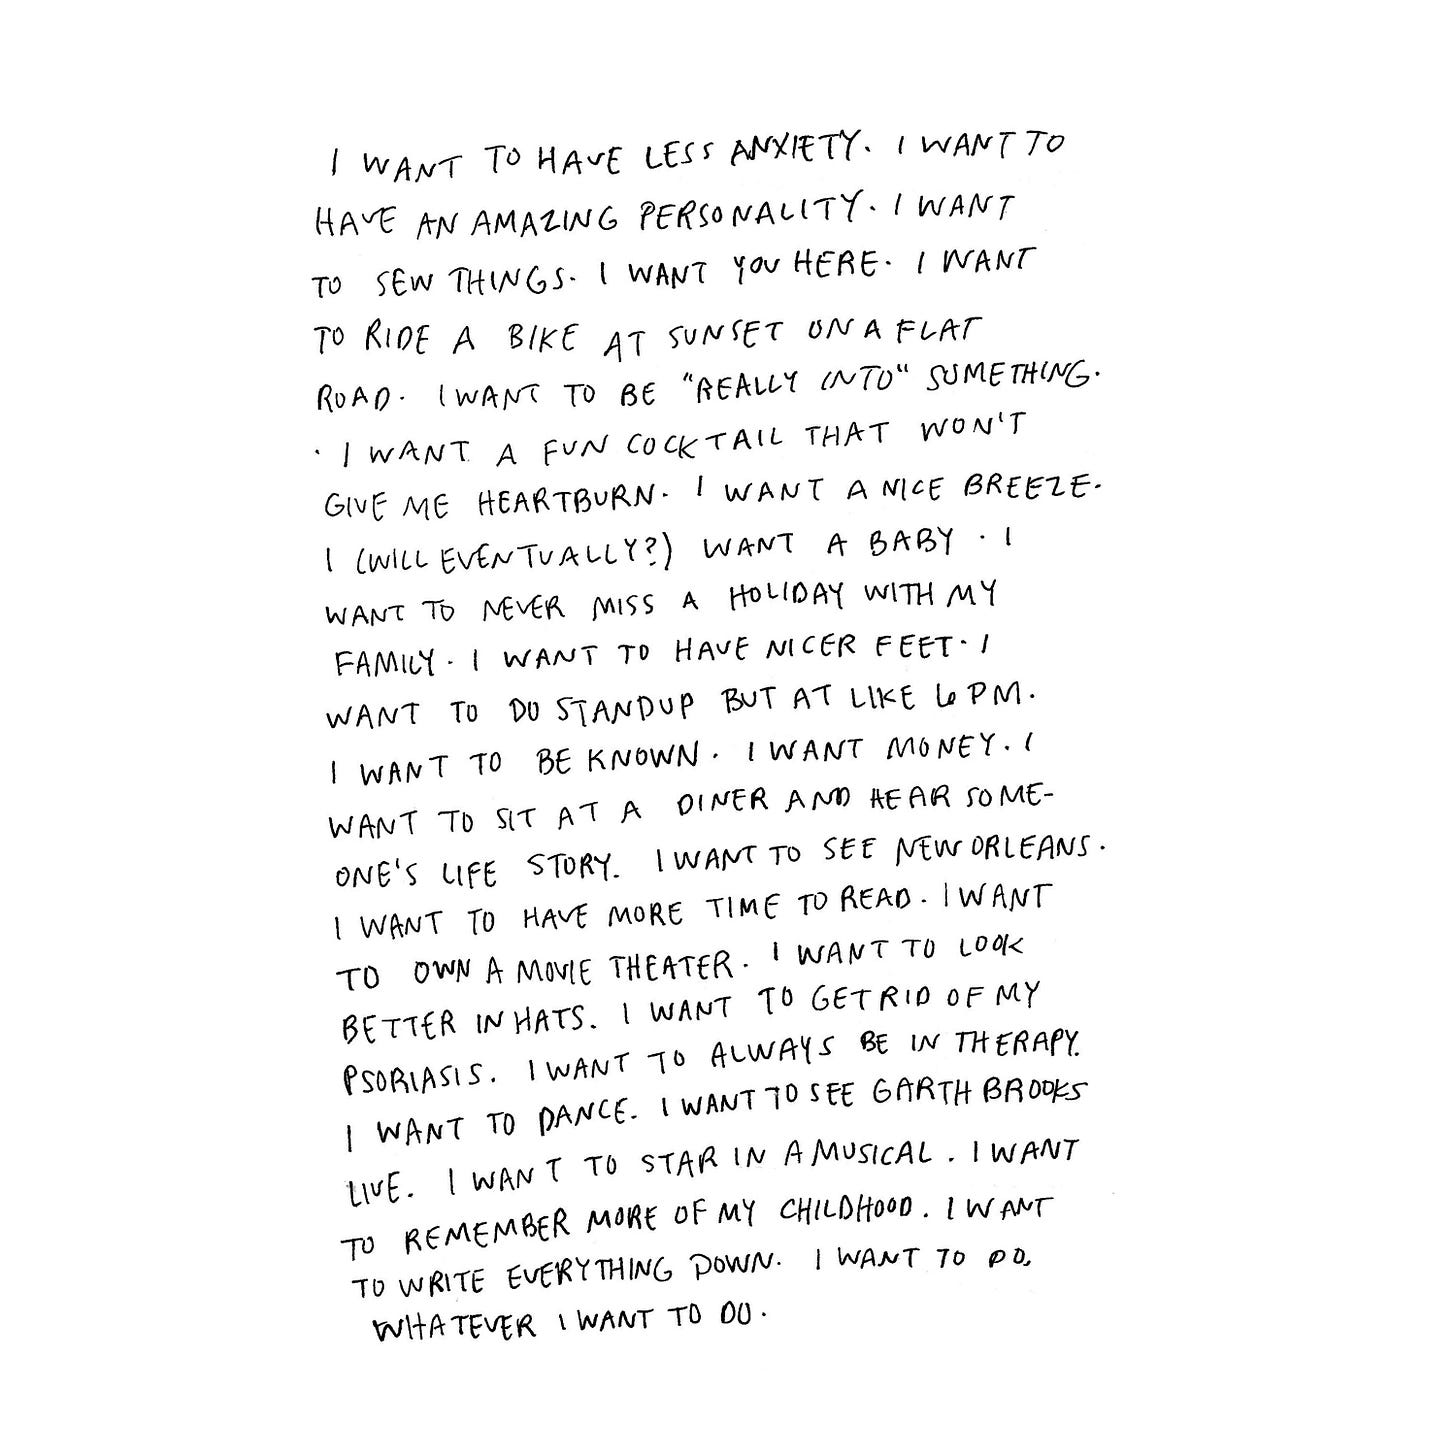 I WANT TO HAVE LESS ANXIETY. I WANT TO
HAVE AN AMAZING PERSONALITY. I WANT
TO SEW THINGS. I WANT YOU HERE. I WANT
TO RIDE A BIKE AT SUNSET ON A FLAT
ROAD. I WANT TO BE "REALLY INTO" SOMETHING.
. I WANT A FUN COCKTAIL THAT WON'T
GIVE ME HEARTBURN. I WANT A NICE BREEZE.
I (WILL EVENTUALLY?) WANT A BABY. I
WANT TO NEVER MISS A HOLIDAY WITH MY
FAMILY. I WANT TO HAVE NICER FEET. I
WANT TO DO STANDUP BUT AT LIKE 6 PM.
I WANT TO BE KNOWN. I WANT MONEY. I
WANT TO SIT AT A DINER AND HEAR SOME-
ONE'S LIFE STORY. I WANT TO SEE NEW ORLEANS.
I WANT TO HAVE MORE TIME TO READ. I WANT
TO OWN A MOVIE THEATER. I WANT TO LOOK
BETTER IN HATS. I WANT TO GET RID OF MY
PSORIASIS. I WANT TO ALWAYS BE IN THERAPY.
I WANT TO DANCE. I WANT TO SEE GARTH BROOKS
LIVE. I WANT TO STAR IN A MUSICAL. I WANT
TO REMEMBER MORE OF MY CHILDHOOD. I WANT
TO WRITE EVERYTHING DOWN. I WANT TO DO,
WHATEVER I WANT TO DO.